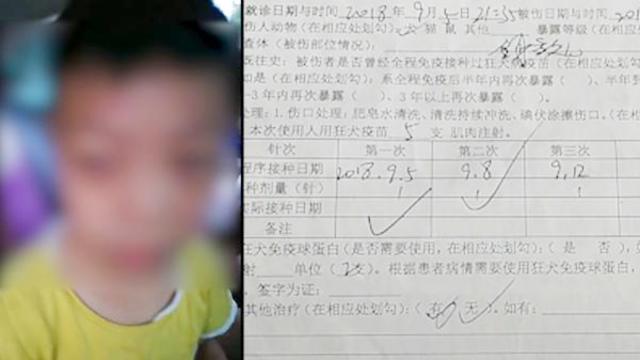 就诊日期与时间 2018年9月5日21:35 被伤日期与时间 201
伤人动物(在相应处划勾):犬 猫 鼠 其他 暴露等级(在相应
查体(被伤部位情况):
既往史:被伤者是否曾经全程免疫接种过狂犬疫苗(在相应处划勾
如是(在相应处划勾):系全程免疫后半年内再次暴露( )、半年
-3年内再次暴露( )、3年以上再次暴露( )。
处理:1.伤口处理:肥皂水清洗、清洗持续冲洗、碘伏涂擦伤口。(在
本次使用人用狂犬疫苗 5 支 肌肉注射。
针次 第一次 第二次 第三次
程序接种日期 2018.9.5 9.8 9.12
种剂量(针) 1 1 1
实际接种日期
备注
狂犬免疫球蛋白(是否需要使用,在相应处划勾):( 是 否),如
射 单位( 支)。根据患者病情需要使用狂犬免疫球蛋白,
。签字为证:
其他治疗(在相应处划勾):(有 无)。如有: